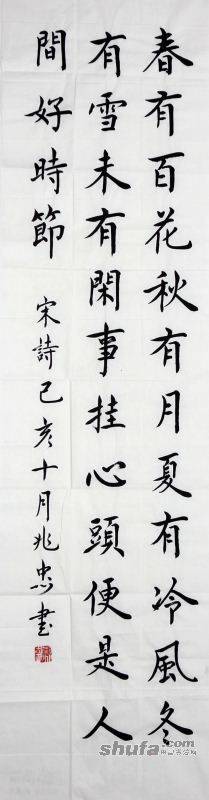 春有百花秋有月夏有冷風冬
有雪未有閑事挂心頭便是人
間好時節
宋詩己亥十月兆忠書
shufa.com